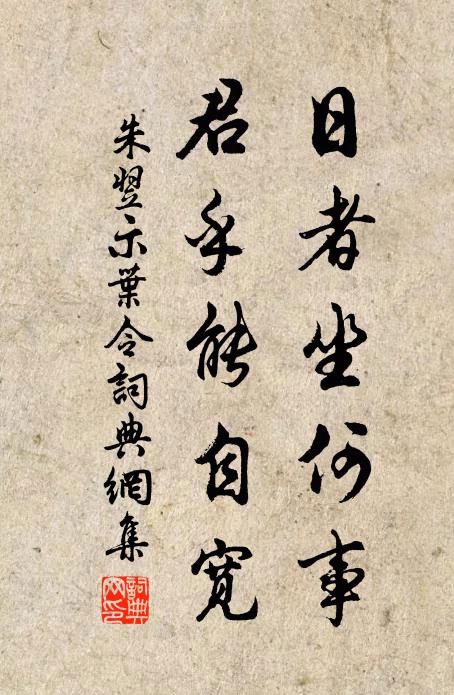 日者坐何事
君乎能自寬
朱翌示葉令詞典網集
詞典網印